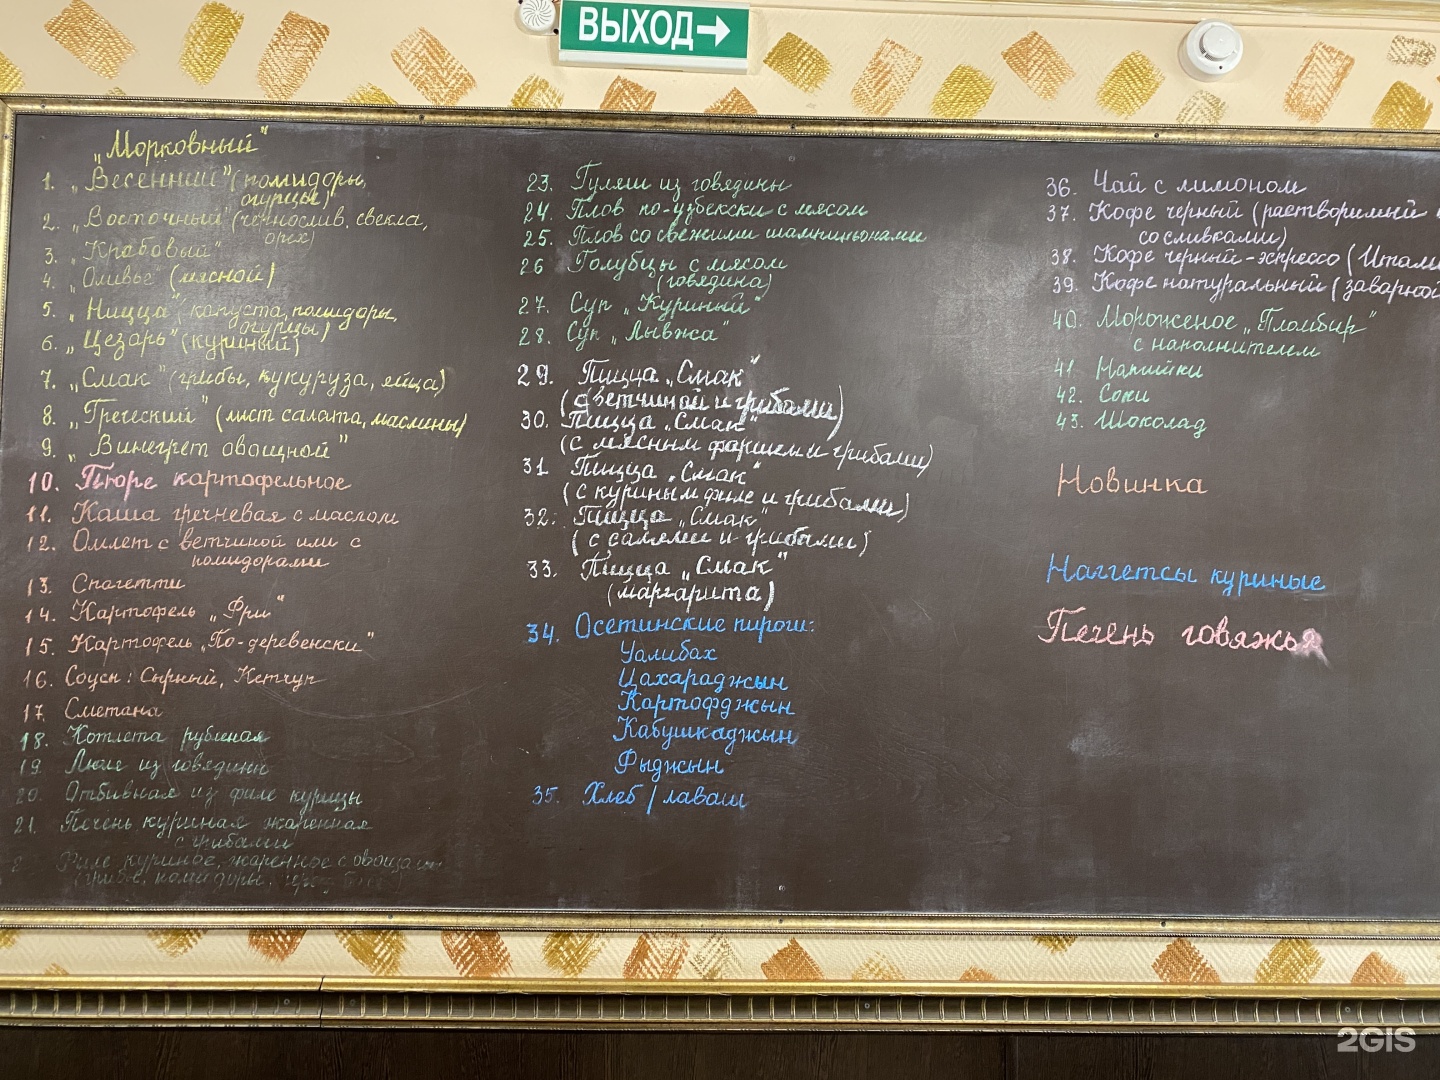 ВЫХОД
„Морковный"
1. „Весенний" (помидоры,
огурцы)"
2. „Восточный" (чернослив, свекла,
орех)
3. „Крабовый"
4. „Оливье" (мясной)
5. „Ницца" (капуста, помидоры,
огурцы)
6. „Цезарь" (куриный)
7. „Смак" (грибы, кукуруза, яйца)
8. „Греческий" (лист салата, маслины)
9. „Винегрет овощной"
10. Пюре картофельное
11. Каша гречневая с маслом
12. Омлет с ветчиной или с
помидорами
13. Спагетти
14. Картофель „Фри"
15. Картофель „По-деревенски"
16. Соусы: Сырный, Кетчуп
17. Сметана
18. Котлета рубленая
19. Люля из говядины
20. Отбивная из филе курицы
21. Печень куриная жаренная
с грибами
Филе куриное, жаренное с овощами
(грибы, помидоры,
23. Гуляш из говядины
24. Плов по-узбекски с мясом
25. Плов со свежими шампиньонами
26 Голубцы с мясом
(говядина)
27. Суп „Куриный"
28. Суп „Лывжа"
29. Пицца „Смак"
(с ветчиной и грибами)
30. Пицца „Смак"
(с мясным фаршем и грибами)
31 Пицца „Смак"
(с куриным филе и грибами)
32. Пицца „Смак"
(с салями и грибами)
33. Пицца „Смак"
(маргарита)
34. Осетинские пироги:
Уалибах
Цахараджын
Картофджын
Кабушкаджын
Фыджын
35. Хлеб / лаваш
36. Чай с лимоном
37. Кофе черный (растворимый
со сливками)
38. Кофе черный-эспрессо (Итали
39. Кофе натуральный (заварной
40. Мороженое „Пломбир"
с наполнителем
41 Напитки
42. Соки
43. Шоколад
Новинка
Наггетсы куриные
Печень говяжья
2GIS